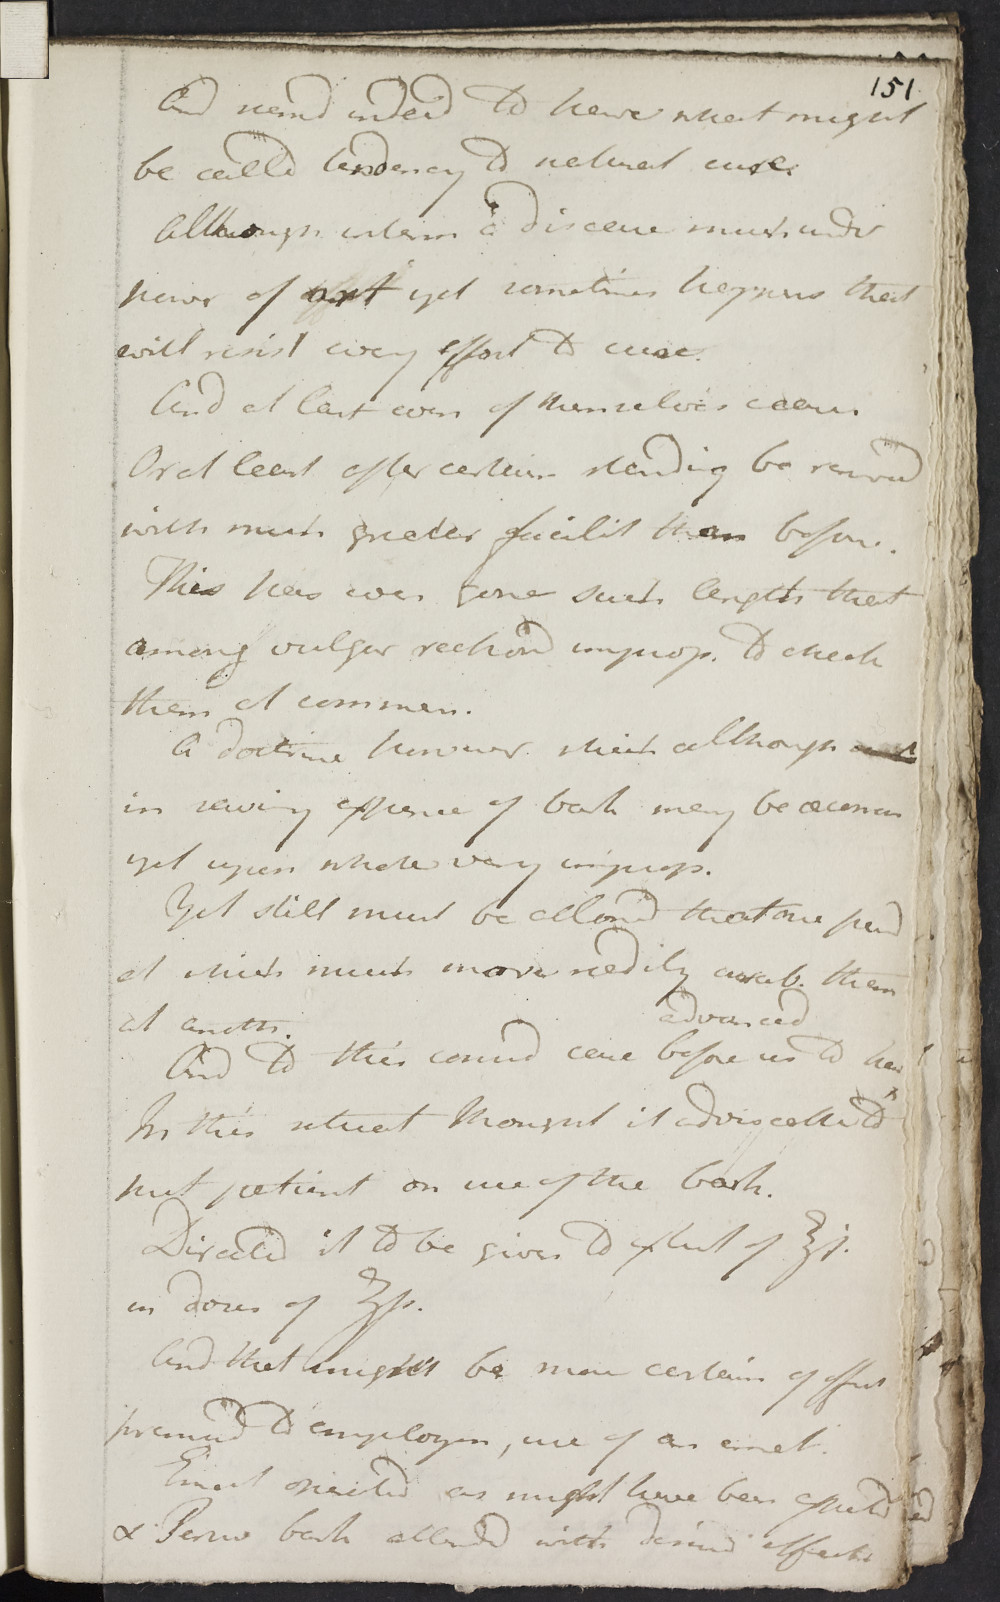 151
And seemd indeed to have what might
be calld tendency to natural cure.
Although interm a disease much under
power of art yet sometimes happens that
will resist every effort to cure.
And at last even of themselves cease
Or at least after certain standing be remvd
with much greater facilit than before.
This has even gone such length that
among vulgar reckond improp. to check
them at commen.
A doctrine however which although
in saving expence of bark may be œconom
yet upon whole very improp.
Yet still must be allow'd that one perd
at which much more readily curab. than
at anoth.
advanced
And to this consid case before us to have
In this situat thought it adviseable to
put patient on use of the bark.
Directed it to be given to extent of ℥j.
in doses of ℥ss.
And that might be more certain of effect
premisd to employm, use of an emet.
Emet operated as might have been expected
& Peruv bark attended with desired effects